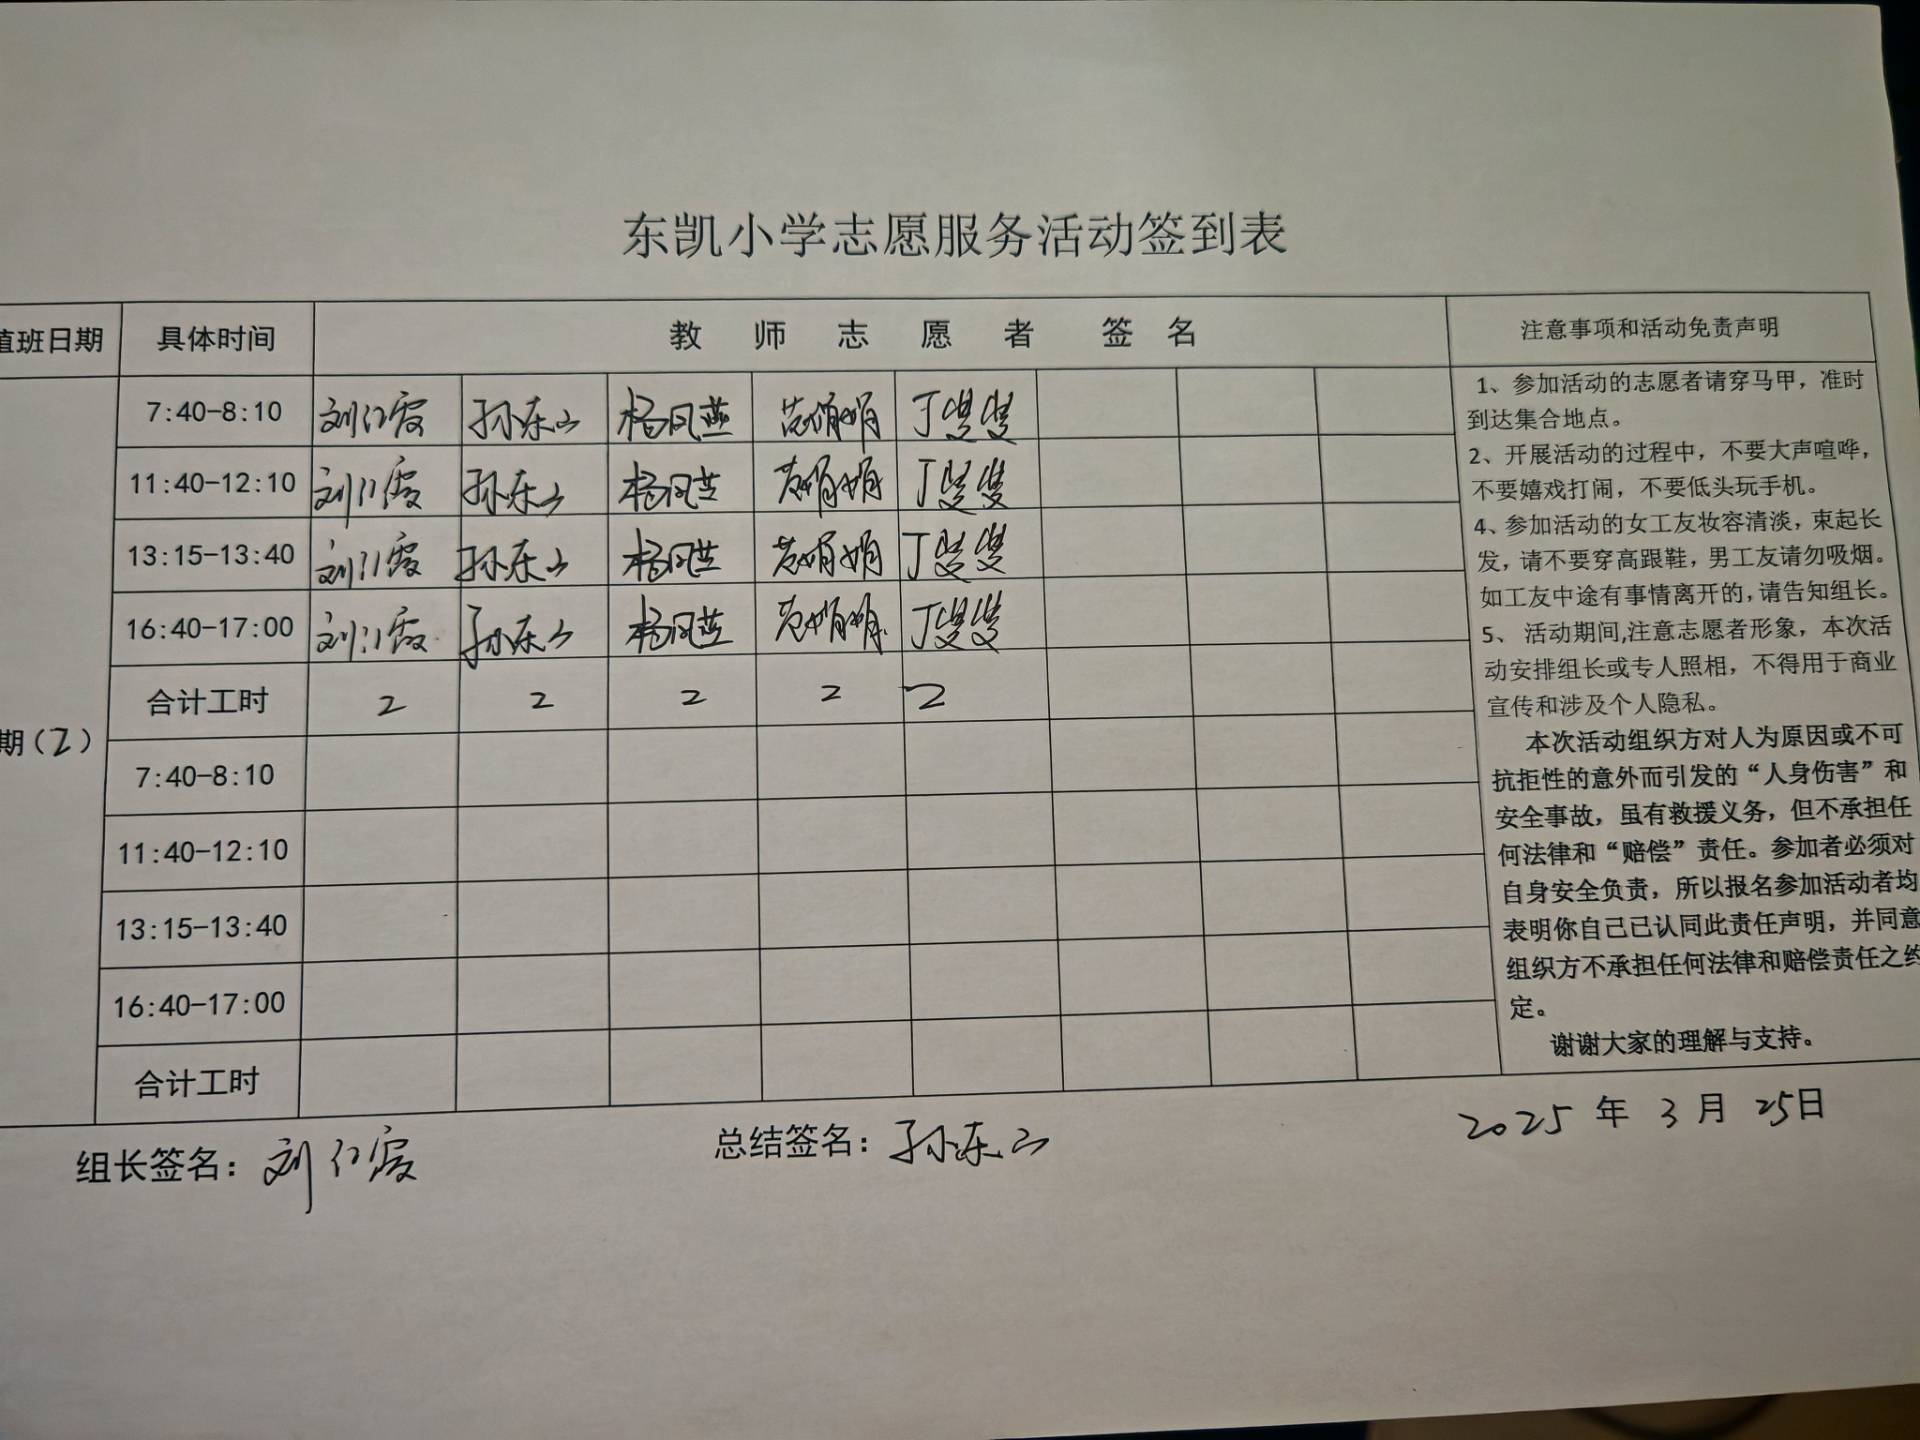 东凯小学志愿服务活动签到表
值班日期 具体时间 教师志愿者签名 注意事项和活动免责声明
7:40-8:10 刘红霞 孙东山 杨凤燕 范娟娟 丁雙雙
11:40-12:10 刘红霞 孙东山 杨凤燕 范娟娟 丁雙雙
13:15-13:40 刘红霞 孙东山 杨凤燕 范娟娟 丁雙雙
16:40-17:00 刘红霞 孙东山 杨凤燕 范娟娟 丁雙雙
合计工时 2 2 2 2 2
期(2)
7:40-8:10
11:40-12:10
13:15-13:40
16:40-17:00
合计工时
1、参加活动的志愿者请穿马甲，准时
到达集合地点。
2、开展活动的过程中，不要大声喧哗，
不要嬉戏打闹，不要低头玩手机。
4、参加活动的女工友妆容清淡，束起长
发，请不要穿高跟鞋，男工友请勿吸烟。
如工友中途有事情离开的,请告知组长。
5、 活动期间,注意志愿者形象，本次活
动安排组长或专人照相，不得用于商业
宣传和涉及个人隐私。
本次活动组织方对人为原因或不可
抗拒性的意外而引发的“人身伤害”和
安全事故，虽有救援义务，但不承担任
何法律和“赔偿”责任。参加者必须对
自身安全负责，所以报名参加活动者均
表明你自己已认同此责任声明，并同意
组织方不承担任何法律和赔偿责任之约
定。
谢谢大家的理解与支持。
组长签名：刘红霞 总结签名：孙东山 2025年3月25日